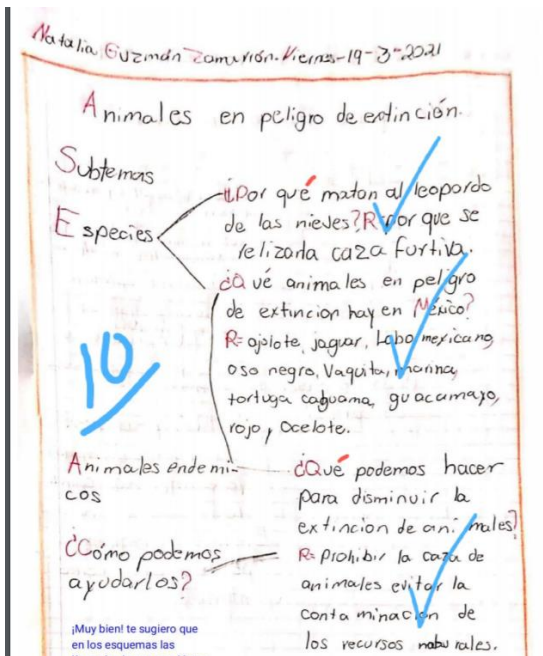 Natalia Guzmán Zamurrón. Viernes-19-3-2021
Animales en peligro de extinción.
Subtemas
Especies
¿Por qué matan al leopardo
de las nieves? R= por que se
relizarla caza furtiva.
¿Qué animales en peligro
de extincion hay en México?
R= ajolote, jaguar, Lobo mexicano,
oso negro, Vaquita, marina,
tortuga caguama, guacamayo,
rojo, Ocelote.
10
Animales endemi-
cos
¿Qué podemos hacer
para disminuir la
extincion de animales?
¿Cómo podemos
ayudarlos?
R= Prohibir la caza de
animales evitar la
conta minación de
los recursos naturales.
¡Muy bien! te sugiero que
en los esquemas las